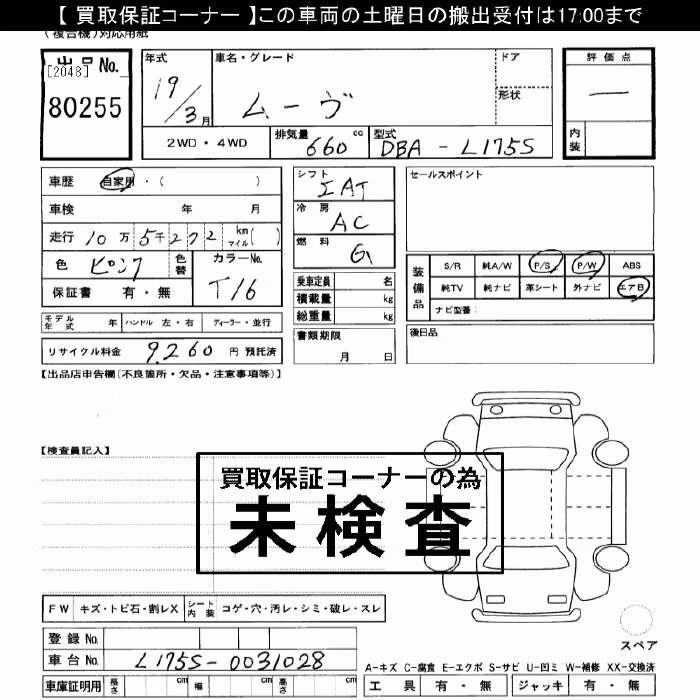 【 買取保証コーナー 】この車両の土曜日の搬出受付は17:00まで
(複合機)対応用紙
出品 No.
[2048]
80255
年式
19/3月
車名・グレード
ムーヴ
ドア
形状
2WD・4WD
排気量 660 cc
型式 DBA - L175S
評価点
―
内装
車歴 自家用・( )
車検 年 月
走行 10万5千272 km マイル( )
色 ピンク 色替
カラーNo. T16
保証書 有・無
モデル年式 年 ハンドル 左・右 ディーラー・並行
リサイクル料金 9,260 円 預託済
シフト IAT
冷房 AC
燃料 G
乗車定員 名
積載量 kg
総重量 kg
書類期限
月 日
セールスポイント
装備品
S/R 純A/W P/S P/W ABS
純TV 純ナビ 革シート 外ナビ エアB
ナビ型番:
後日品
【出品店申告欄(不良箇所・欠品・注意事項等)】
【検査員記入】
買取保証コーナーの為
未検査
FW キズ・トビ石・割レX シート内装 コゲ・穴・汚レ・シミ・破レ・スレ
登録No.
車台No. L175S-0031028
車庫証明用 長さ cm 幅 cm 高さ cm
スペア
A-キズ C-腐食 E-エクボ S-サビ U-凹ミ W-補修 XX-交換済
工具 有・無 ジャッキ 有・無